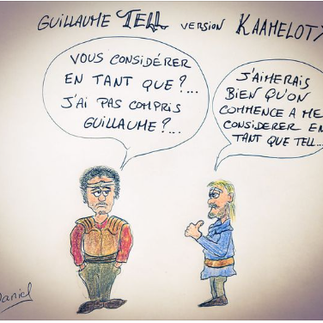 GUILLAUME TELL VERSION KAAMELOTT
VOUS CONSIDÉRER
EN TANT QUE?...
J'AI PAS COMPRIS
GUILLAUME?...
J'AIMERAIS
BIEN QU'ON
COMMENCE A ME
CONSIDERER EN
TANT QUE TELL...
Daniel